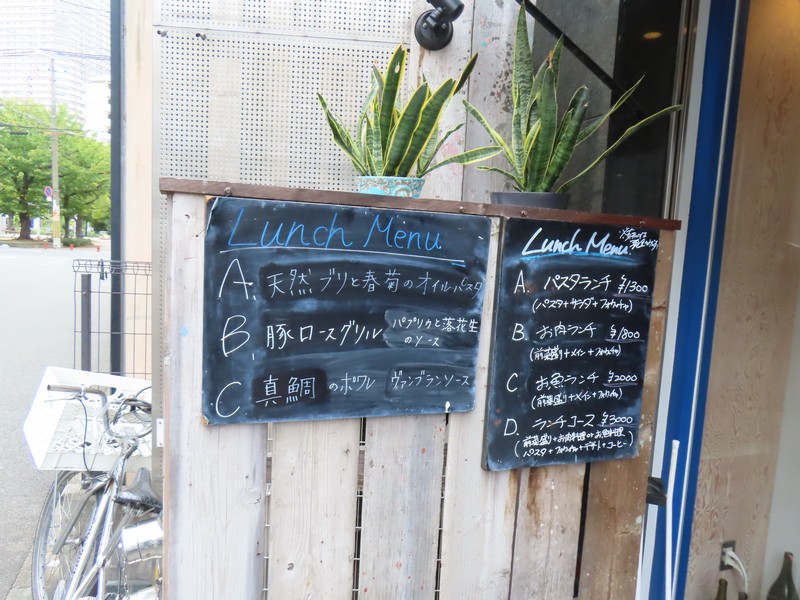 Lunch Menu
A. 天然ブリと春菊のオイルパスタ
B. 豚ロースグリル パプリカと落花生
のソース
C 真鯛のポワレ ヴァンブランソース
Lunch Menu
A. パスタランチ ¥1300
(パスタ+サラダ+フォカッチャ)
B. お肉ランチ ¥1800
(前菜盛り+メイン+フォカッチャ)
C お魚ランチ ¥2000
(前菜盛り+メイン+フォカッチャ)
D. ランチコース ¥3000
(前菜盛り+お肉料理orお魚料理)
パスタ+フォカッチャ+デザート+コーヒー